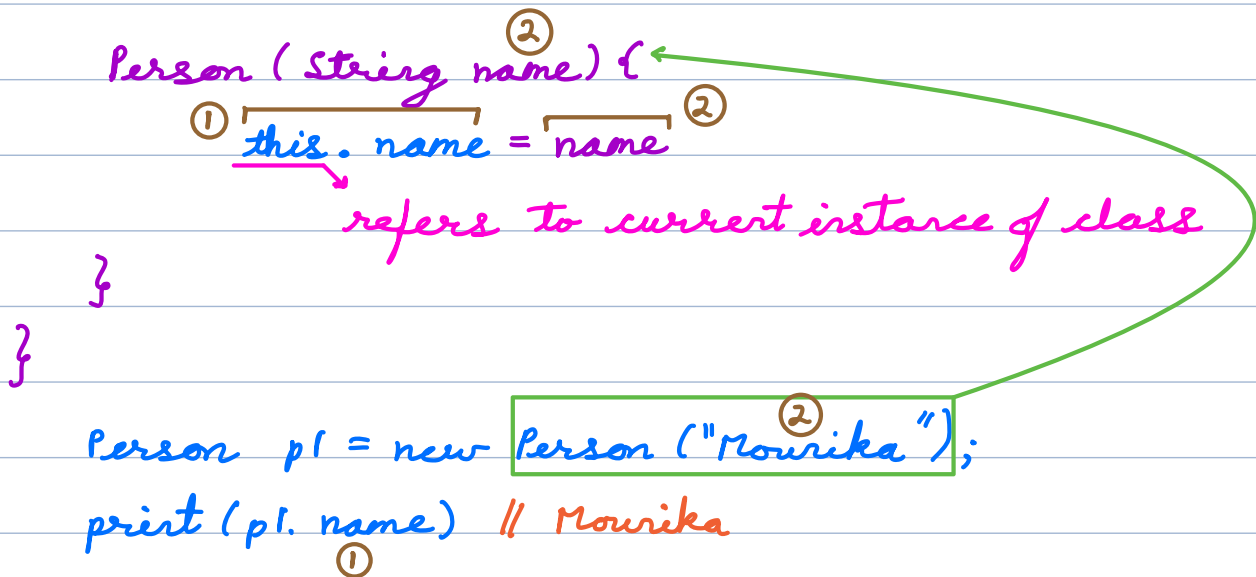 ②
Person ( String name ) {
① ②
this . name = name
refers to current instance of class
}
}
②
Person p1 = new Person ("Mourika");
print ( p1. name ) // Mourika
①